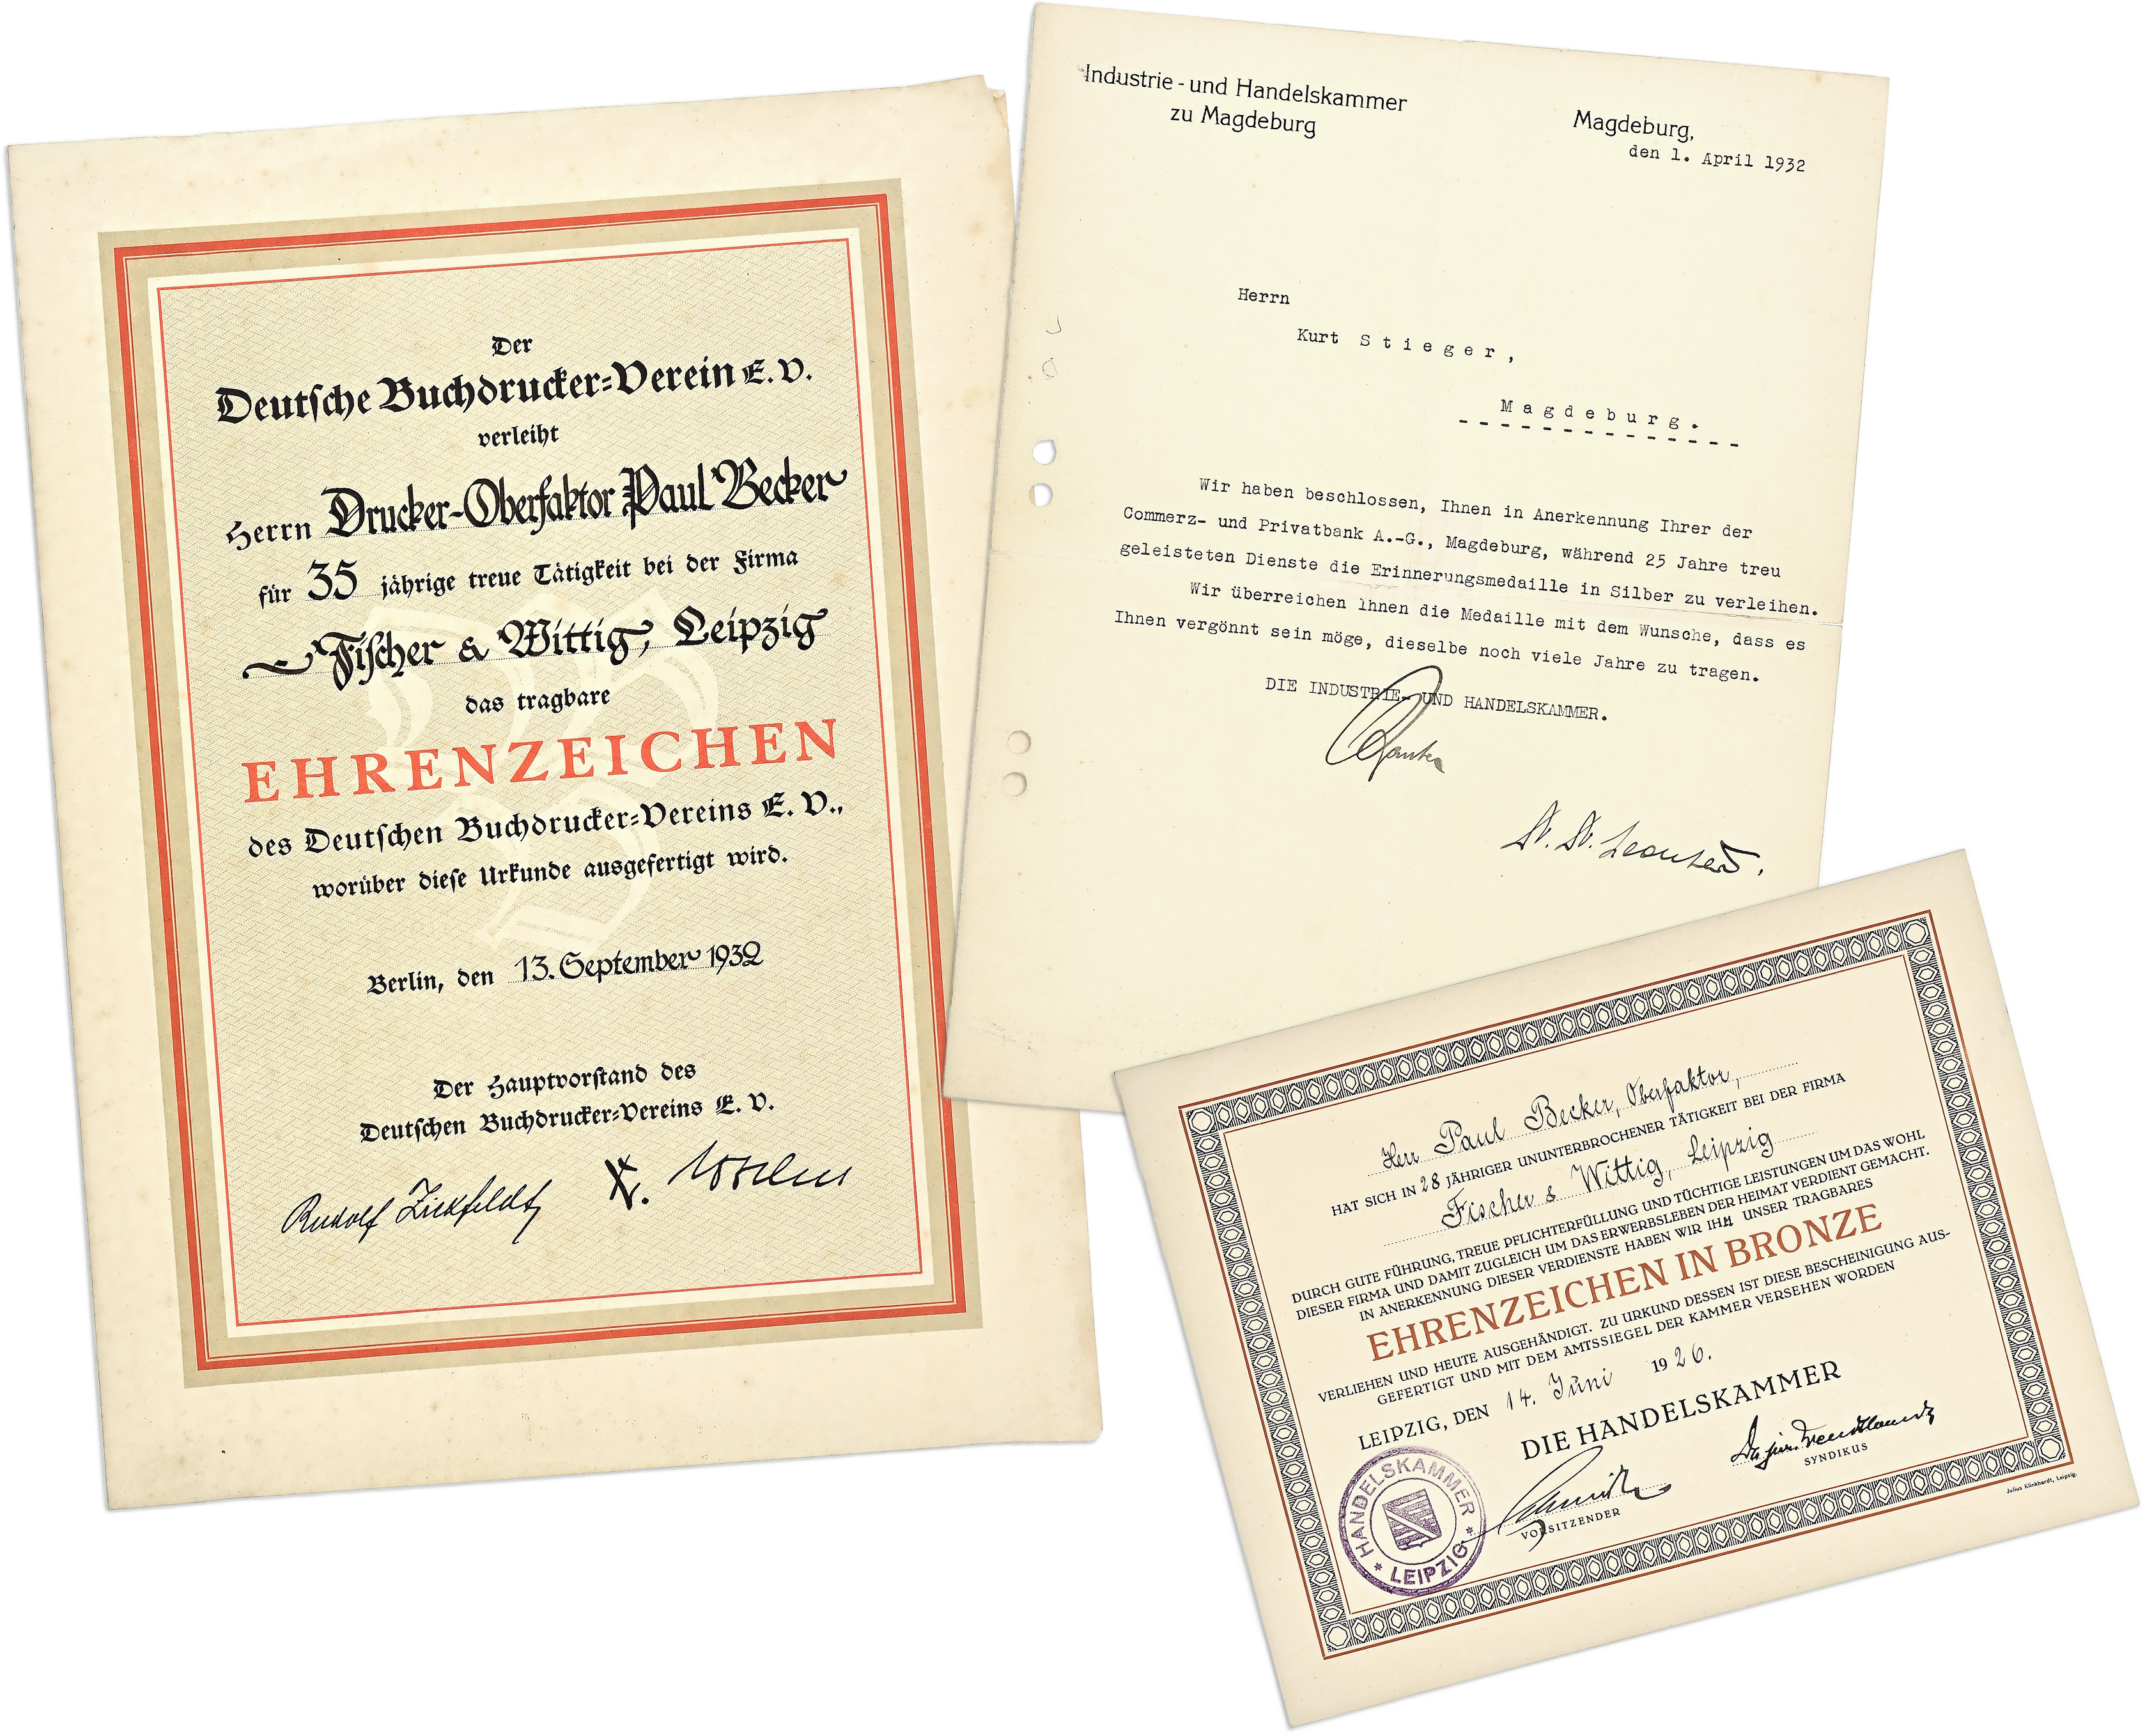 Der
Deutsche Buchdrucker=Verein E.V.
verleiht
Herrn Drucker-Oberfaktor Paul Becker
für 35 jährige treue Tätigkeit bei der Firma
Fischer & Wittig, Leipzig
das tragbare
EHRENZEICHEN
des Deutschen Buchdrucker=Vereins E. V.,
worüber diese Urkunde ausgefertigt wird.
Berlin, den 13. September 1932
Der Hauptvorstand des
Deutschen Buchdrucker=Vereins E. V.
Rudolf
Industrie- und Handelskammer
zu Magdeburg
Magdeburg,
den 1. April 1932
Herrn
Kurt Stieger,
Magdeburg.
Wir haben beschlossen, Ihnen in Anerkennung Ihrer der
Commerz- und Privatbank A.-G., Magdeburg, während 25 Jahre treu
geleisteten Dienste die Erinnerungsmedaille in Silber zu verleihen.
Wir überreichen Ihnen die Medaille mit dem Wunsche, dass es
Ihnen vergönnt sein möge, dieselbe noch viele Jahre zu tragen.
DIE INDUSTRIE- UND HANDELSKAMMER.
Herr Paul Becker, Oberfaktor,
HAT SICH IN 28 JÄHRIGER UNUNTERBROCHENER TÄTIGKEIT BEI DER FIRMA
Fischer & Wittig, Leipzig
DURCH GUTE FÜHRUNG, TREUE PFLICHTERFÜLLUNG UND TÜCHTIGE LEISTUNGEN UM DAS WOHL
DIESER FIRMA UND DAMIT ZUGLEICH UM DAS ERWERBSLEBEN DER HEIMAT VERDIENT GEMACHT.
IN ANERKENNUNG DIESER VERDIENSTE HABEN WIR IHM UNSER TRAGBARES
EHRENZEICHEN IN BRONZE
VERLIEHEN UND HEUTE AUSGEHÄNDIGT. ZU URKUND DESSEN IST DIESE BESCHEINIGUNG AUS-
GEFERTIGT UND MIT DEM AMTSSIEGEL DER KAMMER VERSEHEN WORDEN
LEIPZIG, DEN 14. Juni 1926.
DIE HANDELSKAMMER
VORSITZENDER
SYNDIKUS
HANDELSKAMMER
* LEIPZIG *
Julius Klinkhardt, Leipzig.